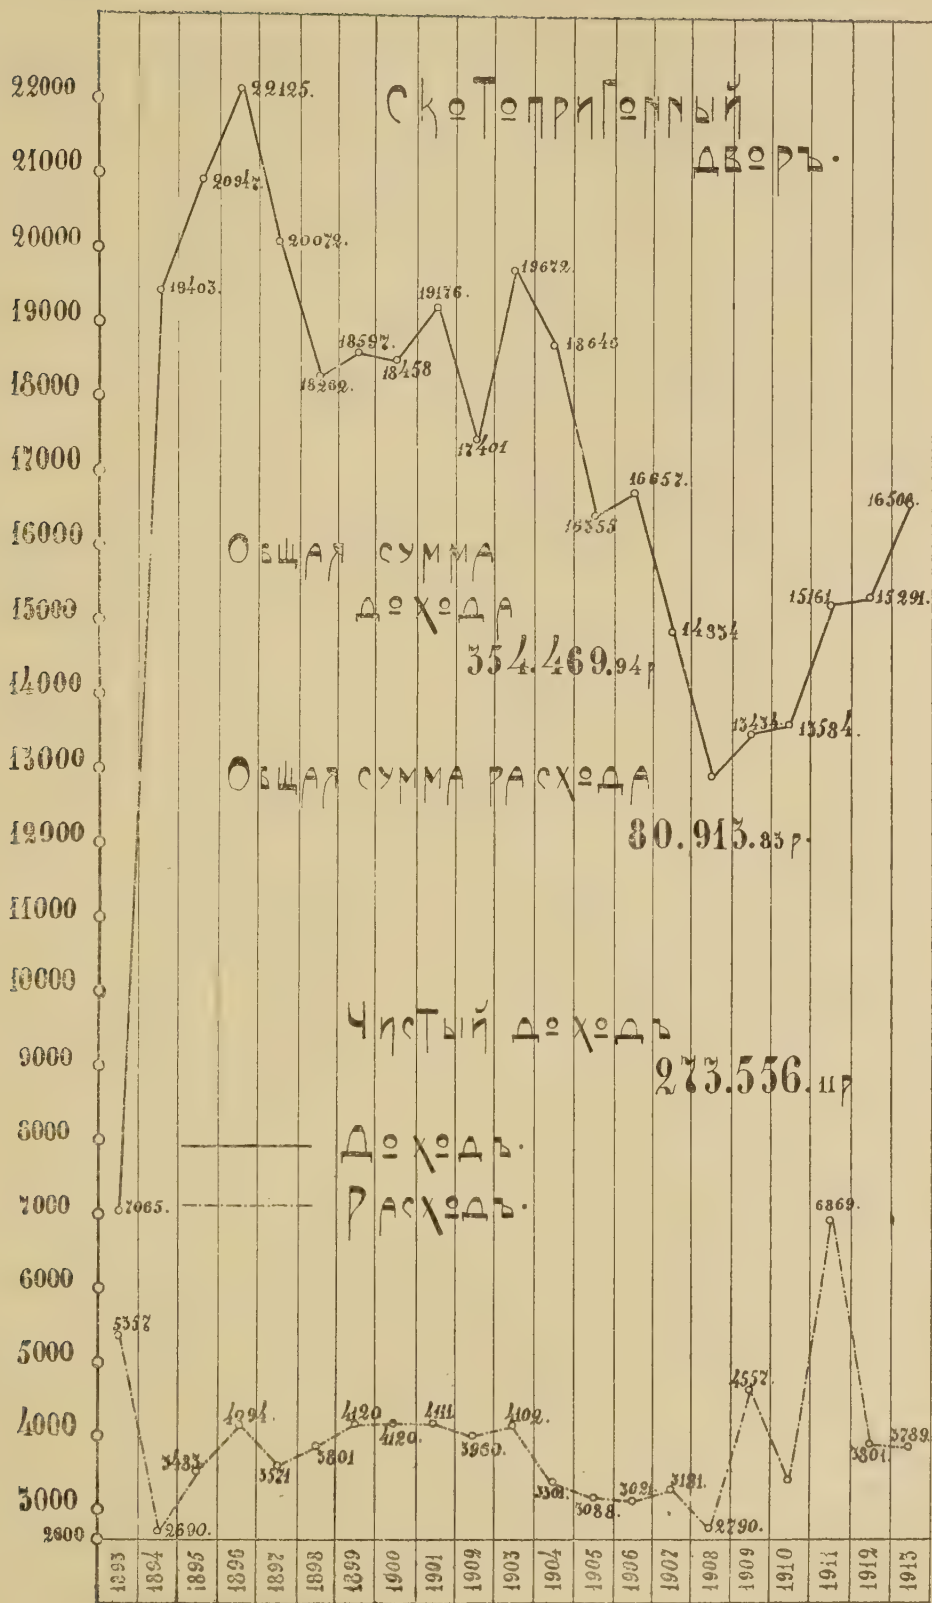 Скотопригонный
дворъ.
22000
21000
20000
19000
18000
17000
16000
15000
14000
13000
12000
11000
10000
9000
8000
7000
6000
5000
4000
3000
2600
7065.
19403.
20947.
22125.
20072.
18262.
18597.
18458
19176.
17401
19672.
16355
16657.
14834
13434.
13584.
15161.
15291.
Общая сумма
дохода
354.469.94 р
Общая сумма расхода
80.913.83 р.
Чистый доходъ
273.556.11 р
Доходъ.
Расходъ.
5357
2690.
3483
3801
4120
4120.
4111
3960.
4102.
3301.
3088.
3021
3181.
2790.
4557.
6869.
3801.
3789.
1893
1894
1895
1896
1897
1898
1899
1900
1901
1902
1903
1904
1905
1906
1907
1908
1909
1910
1911
1912
1913